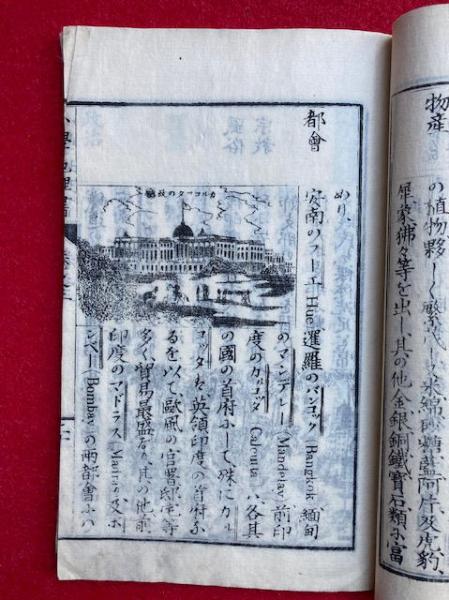 物産
の植物夥しく繁茂
米綿砂糖藍阿片及虎豹、
犀象狒々等を出し其の他金銀銅鐵寳石類に富
めり、
都會
安南のフーエ Hue 暹羅のバンコック (Bangkok 緬甸
のマンデレー (Mandelay 前印
度のカルコッタ Calcutta ハ各其
の國の首府にして殊にカル
コッタは英領印度の首府な
るを以て歐風の官署邸宅等
多く貿易最盛なり其の他前
印度のマドラス (Madras 及ボ
ンベー (Bombay の両都會ハ
カルコッタの
小學地理書